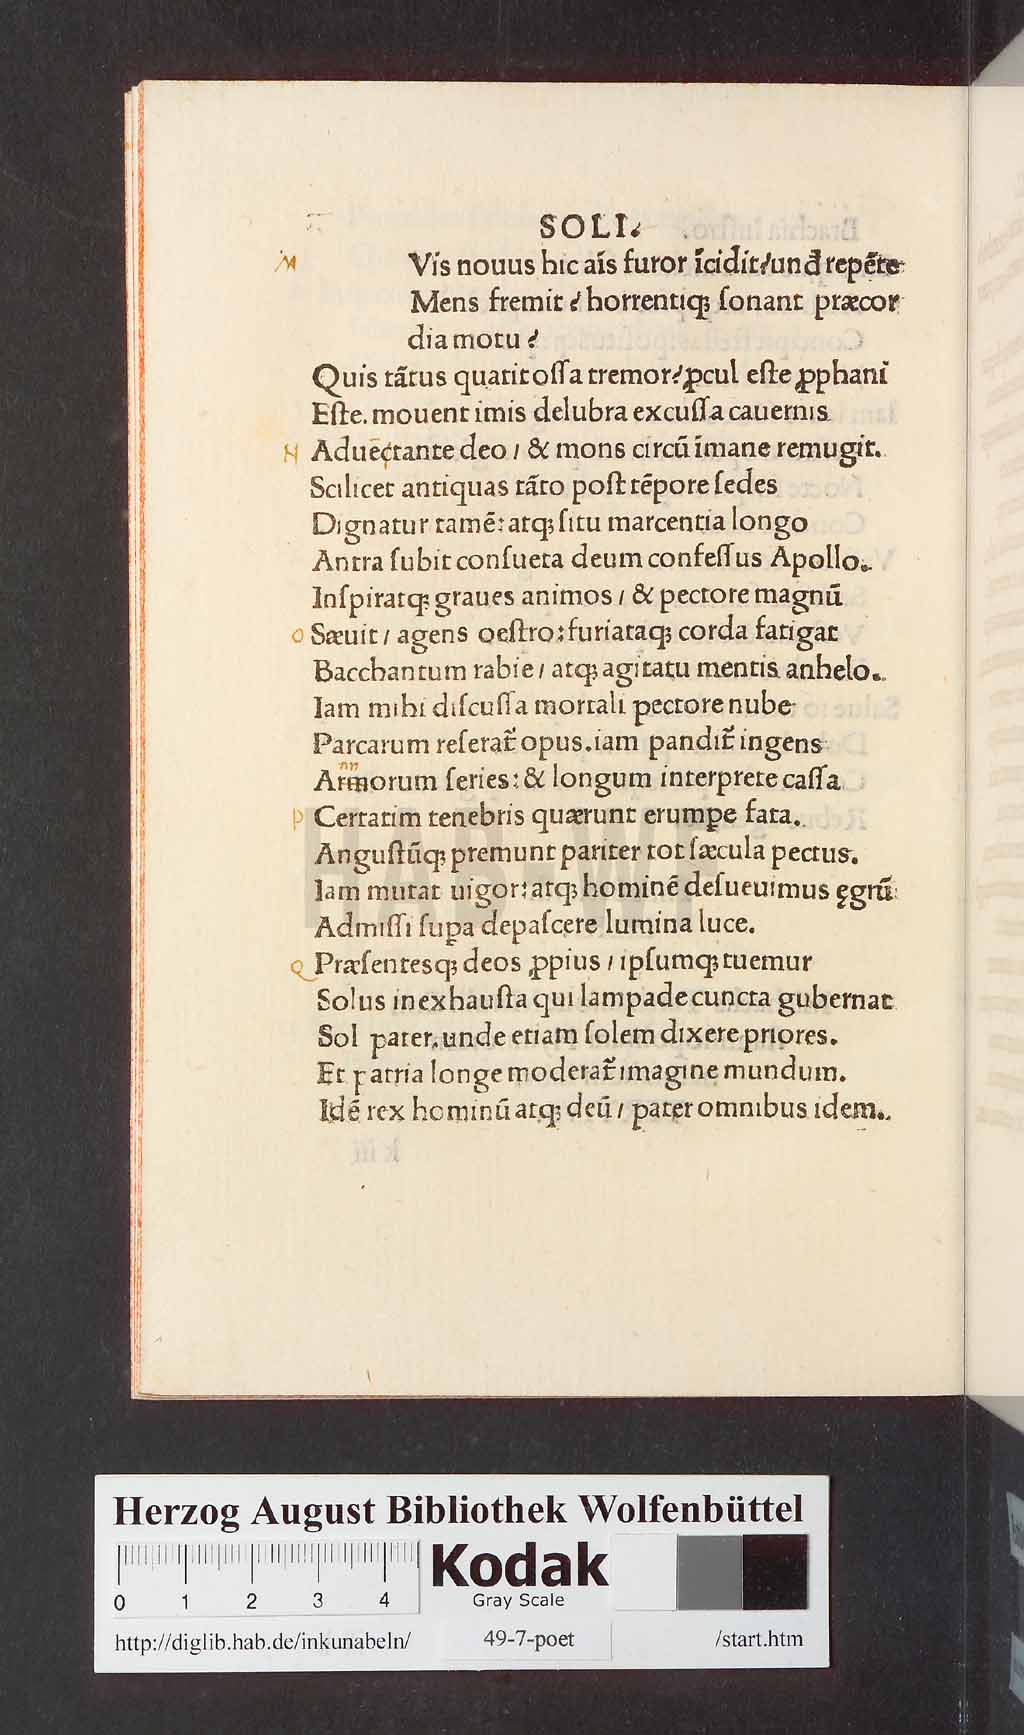 SOLI.
M Vis nouus hic aīs furor ĩcidit?unđ repẽte
Mens fremit? horrentiqꝫ ſonant præcor
dia motu?
Quis tãtus quatit oſſa tremor?ꝓcul eſte ꝓphani
Eſte. mouent imis delubra excuſſa cauernis
N Aduēctante deo / & mons circũ ĩmane remugit.
Scilicet antiquas tãto poſt tẽpore ſedes
Dignatur tamẽ: atqꝫ ſitu marcentia longo
Antra ſubit conſueta deum confeſſus Apollo.
Inſpiratqꝫ graues animos / & pectore magnũ
O Sæuit / agens oeſtro: furiataqꝫ corda fatigat
Bacchantum rabie / atqꝫ agitatu mentis anhelo.
Iam mihi diſcuſſa mortali pectore nube
Parcarum reſerat᷑ opus. iam pandit᷑ ingens
nn
Armorum ſeries: & longum interprete caſſa
P Certatim tenebris quærunt erumpe fata.
Anguſtũqꝫ premunt pariter tot ſæcula pectus.
Iam mutat uigor: atqꝫ hominẽ deſueuimus ęgrũ
Admiſſi ſuꝑa depaſcere lumina luce.
Q Præſentesqꝫ deos ꝓpius / ipſumqꝫ tuemur
Solus inexhauſta qui lampade cuncta gubernat
Sol pater. unde etiam ſolem dixere priores.
Et patria longe moderat᷑ imagine mundum.
Idẽ rex hominũ atqꝫ deũ / pater omnibus idem.
HAB-WF
Herzog August Bibliothek Wolfenbüttel
0 1 2 3 4
Kodak
Gray Scale
http://diglib.hab.de/inkunabeln/ 49-7-poet /start.htm